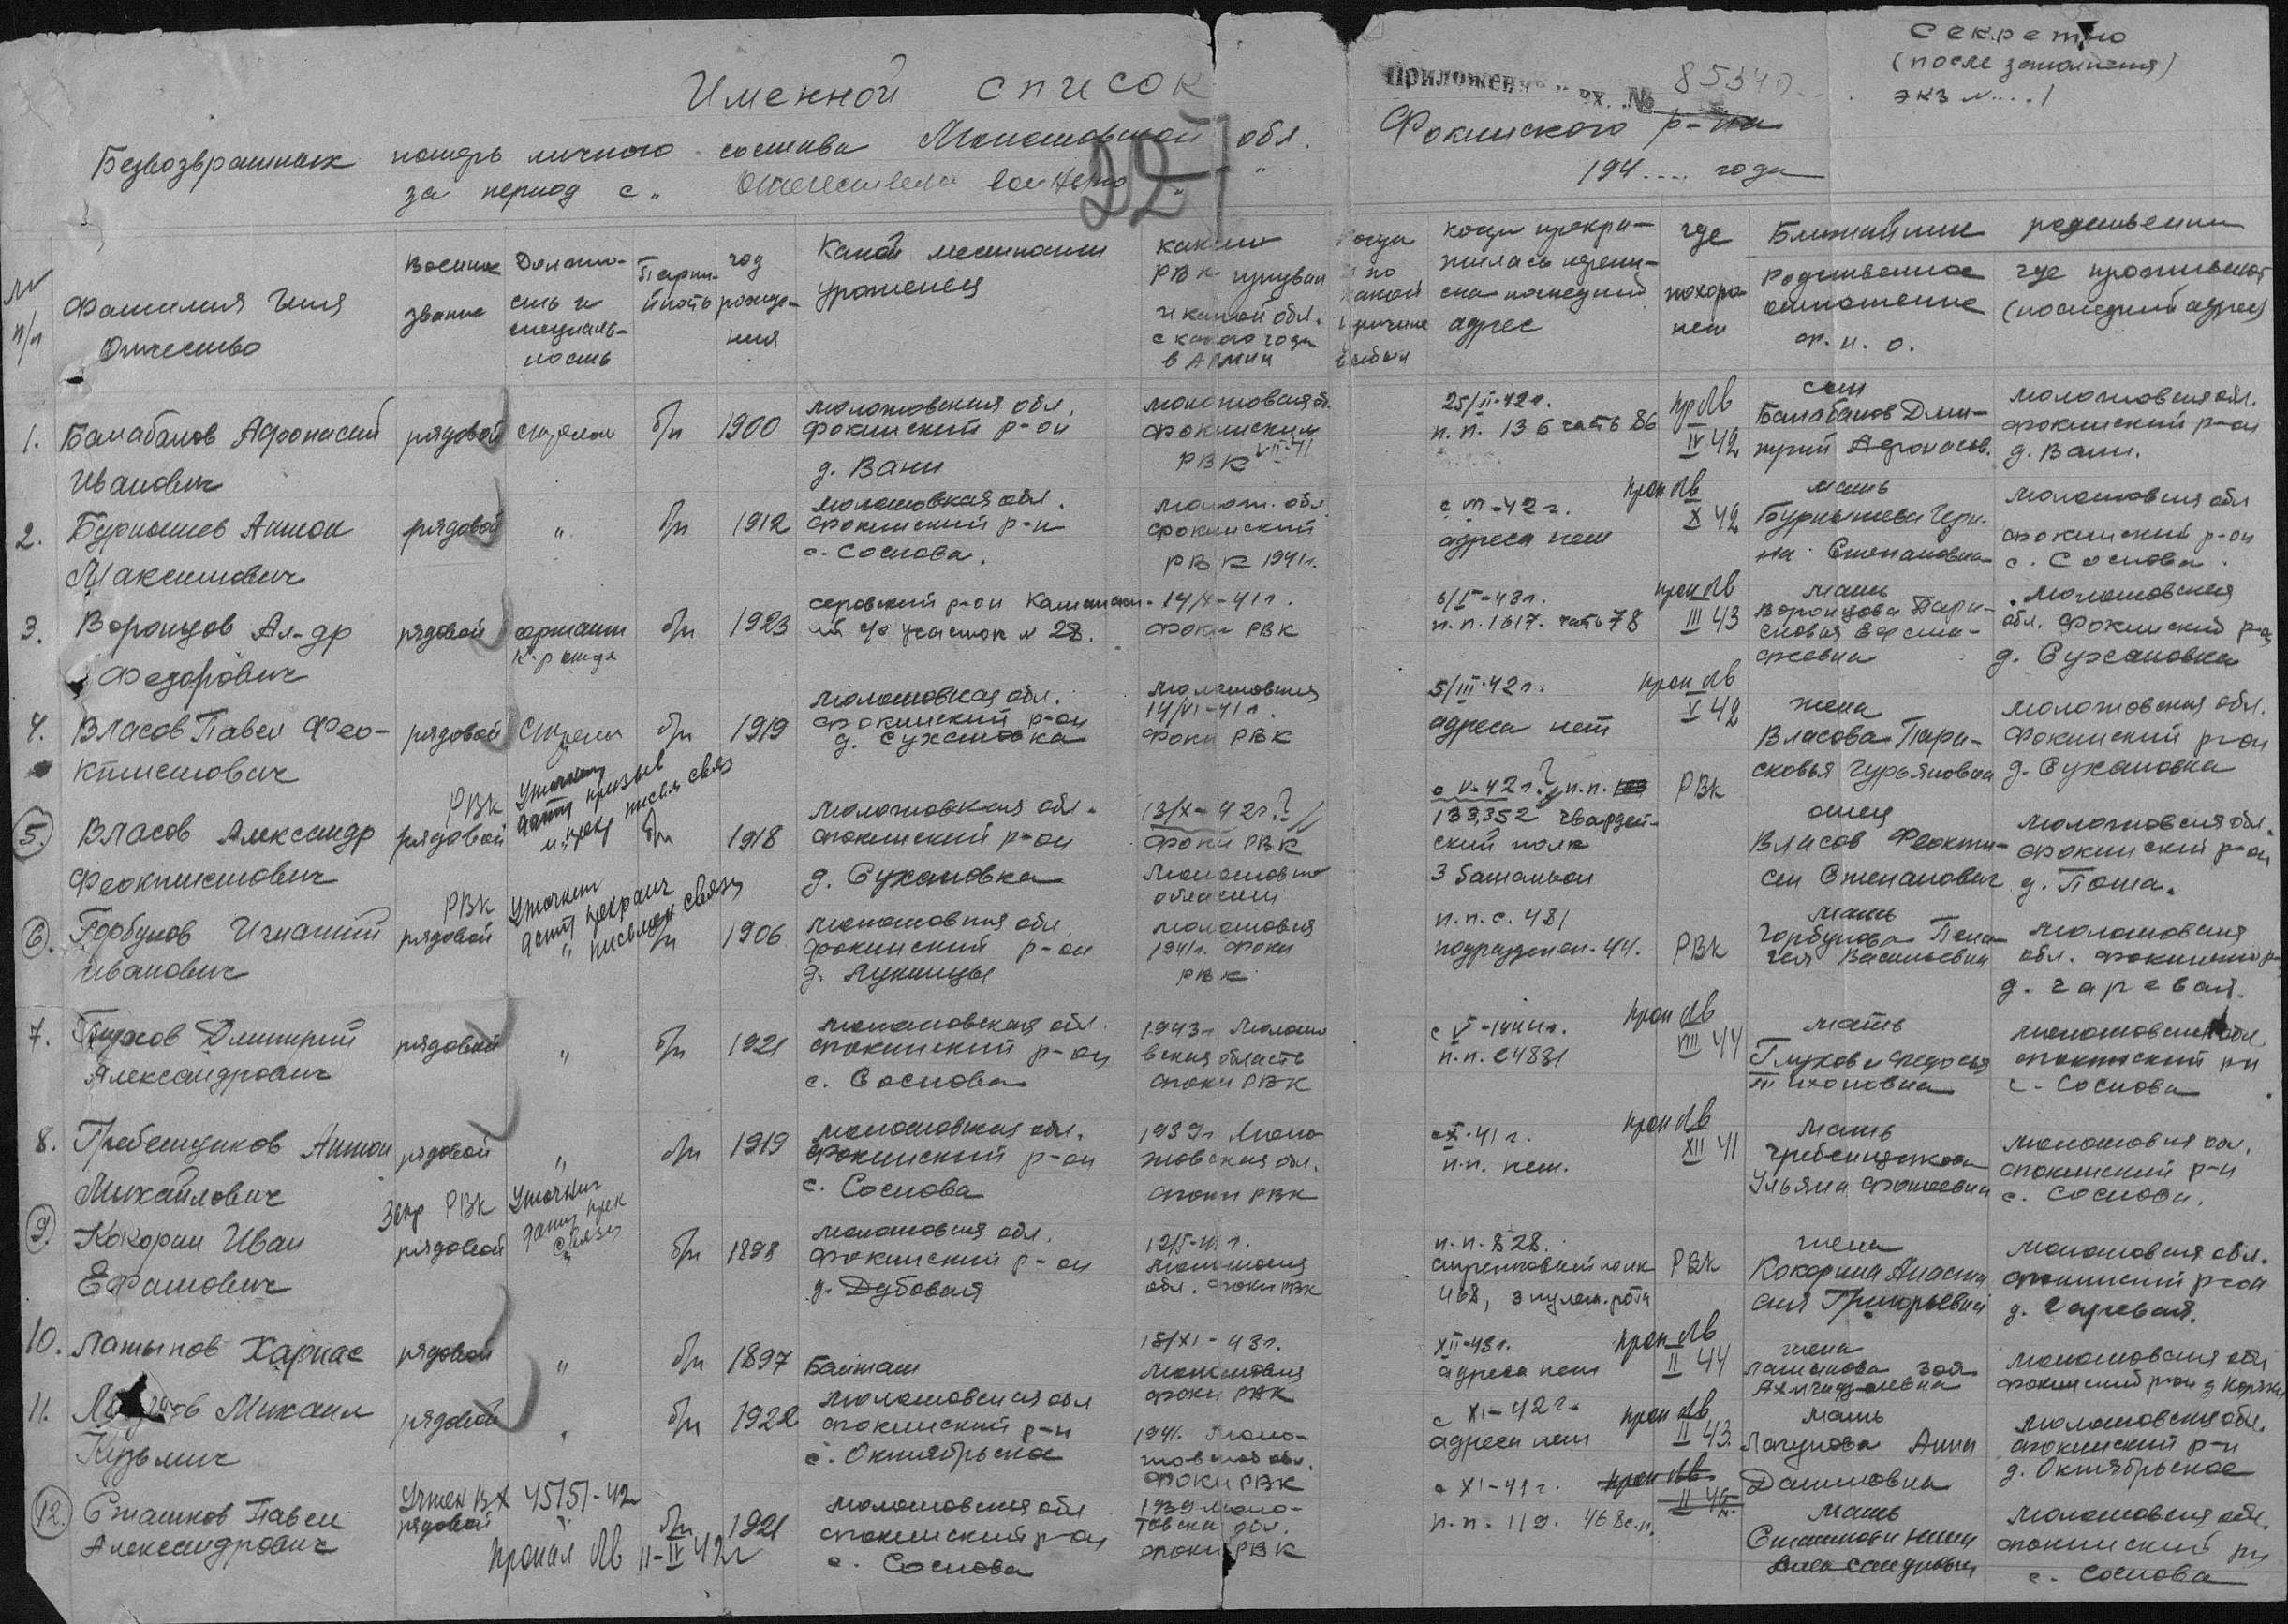 Секретно
(после заполнения)
экз №....1
Приложение вх. № 85340
Именной список
Безвозвратных потерь личного состава Молотовской обл. Фокинского р-на
за период с „ Отечествен войны „ „ 194.... года
227
№ п/п
Фамилия Имя Отчество
Военное звание
Должность и специальность
Партийность
год рождения
Какой местности уроженец
каким РВК призван и какой обл. с какого года в Армии
Когда и по какой причине выбыл
когда прекратилась переписка последний адрес
где похоронен
Ближайшие родственники
Родственное отношение ф. и. о.
где проживают (последний адрес)
1. Балабанов Афонасий Иванович
рядовой стрелок б/п 1900
молотовская обл. фокинский р-он д. Вани
молотовская об. фокинским РВК VII-41
25/II-42 г. п.п. 136 часть 86
проп б/в IV 42
сын Балабанов Дмитрий Афонасов.
молотовская обл. фокинский р-он д. Вани.
2. Бурнышев Антон Максимович
рядовой „ б/п 1912
молотовская обл. фокинский р-н с. Соснова.
молот. обл фокинский РВК 1941 г.
с VII-42 г. адреса нет
проп б/в X 42
мать Бурнышева Степановна
молотовская обл фокинский р-он с. Соснова.
3. Воронцов Ал-др Федорович
рядовой б/п 1923
серовский р-он участок № 28.
14/X-41 г. фоки РВК
6/I-43 г. п.п. 1617. часть 78
проп б/в III 43
мать Воронцова Парасковья
молотовская обл. фокинский р-он д. Сухановка
4. Власов Павел Феоктистович
рядовой Стрелок б/п 1919
молотовская обл. фокинский р-он д. Сухановка
молотовская 14/VI-41 г. фоки РВК
5/III-42 г. адреса нет
проп б/в V 42
жена Власова Парасковья Гурьяновна
молотовская обл. фокинский р-он д. Сухановка
5. Власов Александр Феоктистович
РВК Уточнить дату призыв и прекр письм связ
рядовой б/п 1918
молотовская обл. фокинский р-он д. Сухановка
13/X-42 г.? фоки РВК Молотовской области
с V-42 г.? п.п. 133,352 гвардейский полк 3 батальон
РВК
отец Власов Феоктист Степанович
молотовская обл. фокинский р-он д. Поша.
6. Горбунов Игнатий Иванович
РВК Уточнить дату прекращ письмен связи
рядовой „ б/п 1906
молотовская обл. фокинский р-он д. Лукинцы
молотовская 1941 г. фоки РВК
п.п. с. 481 подразделен. 44.
РВК
мать Горбунова Васильевна
молотовская обл. фокинский р- д. Гаревая.
7. Глухов Дмитрий Александрович
рядовой „ б/п 1921
молотовская обл. фокинский р-он с. Соснова
1943 г. Молотовская область фоки РВК
с V-1944 г. п.п. 24881
проп б/в VIII 44
мать Глухова Федосья Тихоновна
молотовская обл. фокинский р-н с. Соснова
8. Гребенщиков Антон Михайлович
рядовой „ б/п 1919
молотовская обл. фокинский р-он с. Соснова
1939 г. Молотовская обл. фоки РВК
с X-41 г. п.п. нет.
проп б/в XII 41
мать Гребенщикова Ульяна
молотовская обл. фокинский р-н с. Соснова.
9. Кокорин Иван Ефимович
Запр РВК Уточнить дату прек связи
рядовой „ б/п 1898
молотовская обл. фокинский р-он д. Дубовая
молотовская обл. фоки РВК
п.п. 828. стрелковый полк 468, 3 пулем. рота
РВК
жена Кокорина Анастасия Григорьевна
молотовская обл. фокинский р-он д. Гаревая.
10. Латыпов Харнас
рядовой „ б/п 1897 Баиташ
18/XI-43 г. молотовская фоки РВК
XII-43 г. адреса нет
проп б/в II 44
жена Латыпова Зоя
молотовская обл фокинский р-он д
11. Михаил Кузьмич
рядовой „ б/п 1922
молотовская обл фокинский р-н с. Октябрьское
1941. Молотовская обл. фоки РВК
с XI-42 г. адреса нет
проп б/в II 43.
мать Лагунова Анна Даниловна
молотовская обл. фокинский р-н д. Октябрьское
12. Сташков Павел Александрович
Учтен вх 45151-42
рядовой „ б/п 1921
Пропал б/в II-IV 42 г
молотовская обл фокинский р-он с. Соснова
1939 молотовская обл. фоки РВК
с XI-41 г. п.п. 119. 468 с.п.
проп б/в II 42.
мать Сташкова Нина Александровна
молотовская обл. фокинский р-н с. Соснова